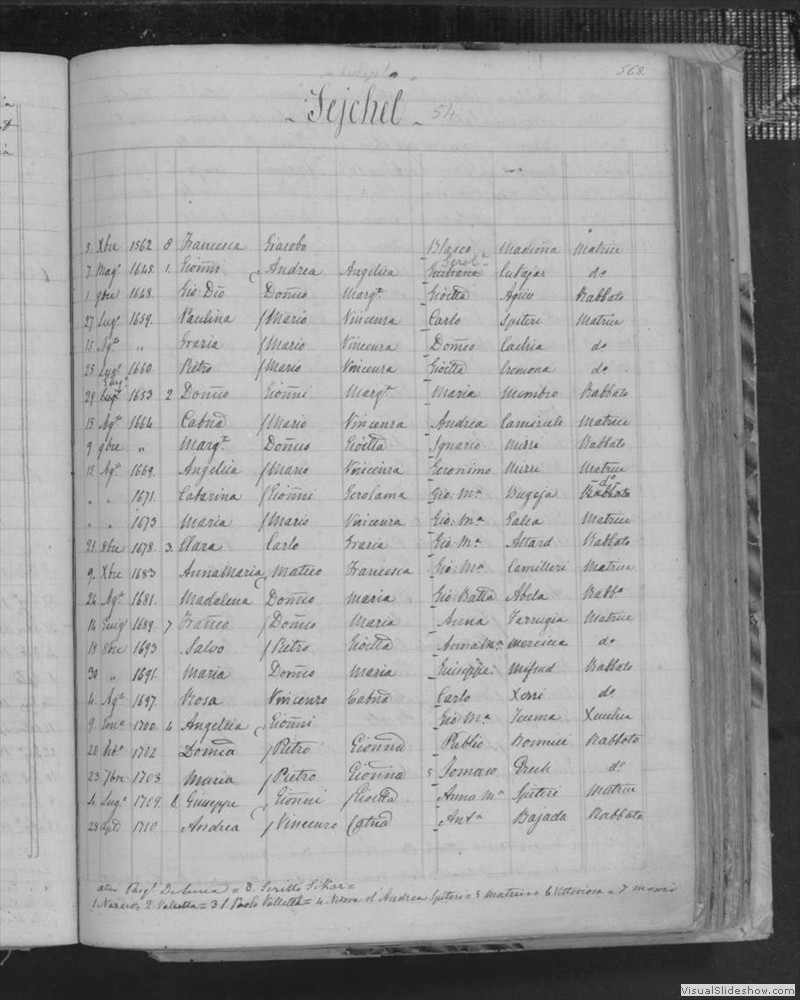 568.
- Sejchel - 54
5 Xbre 1562 8 Francesca Giacobo Blasco Madiona Matrice
7 Mag.º 1645. 1. Gioñi Andrea Angelica Giuliana Cutajar d.º
1 9bre 1648. Gio: Dio Dom̃co Marg.ta Gioetta Agius Rabbato
27 Lug.º 1659. Paulina / Mario Vincenza Carlo Spiteri Matrice
15 Ag.to " Grazia / Mario Vincenza Dom̃co Cachia d.º
25 Lug.º 1660. Pietro / Mario Vincenza Gioetta Cremona d.º
29 1653 2 Dom̃co Gioñi Marg.ta Maria Mombro Rabbato
15 Ag.to 1664 Catnã / Mario Vincenza Andrea Matrice
9 9bre " Marg.ta Dom̃co Gioetta Ignazio Mizzi Rabbato
15 Ag.to 1669. Angelica / Mario Vincenza Geronimo Mizzi Matrice
" " 1671. Catarina / Gioñi Gerolama Gio: M.a Bugeja d.º
" " 1673 Maria / Mario Vincenza Gio: M.a Galea Matrice
21 8bre 1678. 3. Clara Carlo Grazia Gio: M.a Attard Rabbato
9. Xbre 1683 Anna Maria Matteo Francesca Gio: M.a Camilleri Matrice
24 Ag.to 1681. Madalena Dom̃co Maria Gio Batta Abela Rabb.º
14 Giug.º 1689. 7 Frañco / Dom̃co Maria Anna Farrugia Matrice
18 8bre 1693 Salvo / Pietro Gioetta Anna M.a Mercieca d.º
30 " 1691. Maria Dom̃co Maria Giuseppe Mifsud Rabbato
4. Ag.to 1697. Rosa Vincenzo Catnã Carlo Xerri d.º
9. Gen.º 1700. 4 Angelica Gioñi Gio: M.a Teuma
20 1702 Domca / Pietro Gionna Publio Bonnici Rabbato
23 7bre 1703. Maria / Pietro Gionna 5 Tomaso Grech d.º
4. Lug.º 1709. 6 Giuseppe Gioñi / Gioetta Anna M.a Spiteri Matrice
28 1710. Andrea / Vincenzo Catnã Ant.a Bajada Rabbato
1. 2. Valletta = 3 S. Paolo Valletta = 4. Vedova d' Andrea Spiteri = 5 Matrice = 6 Vittoriosa = 7
VisualSlideshow.com